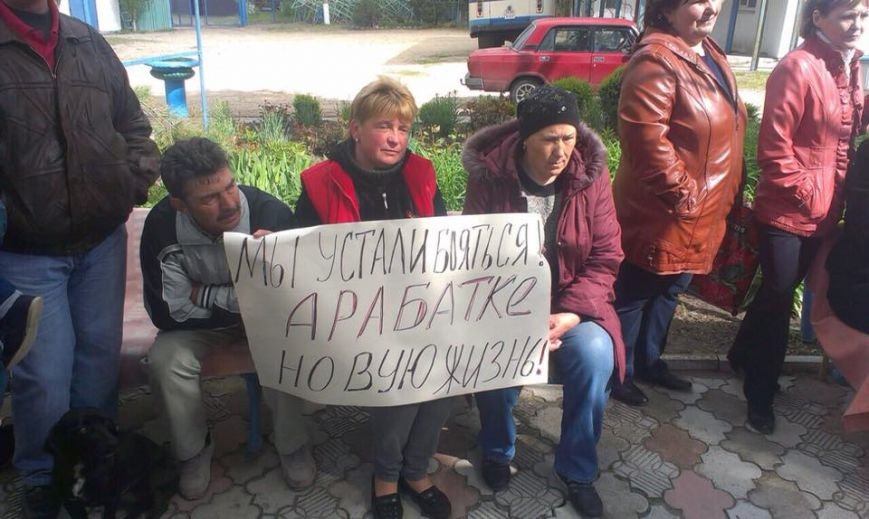 МЫ УСТАЛИ БОЯТЬСЯ!
АРАБАТКЕ
НОВУЮ ЖИЗНЬ!